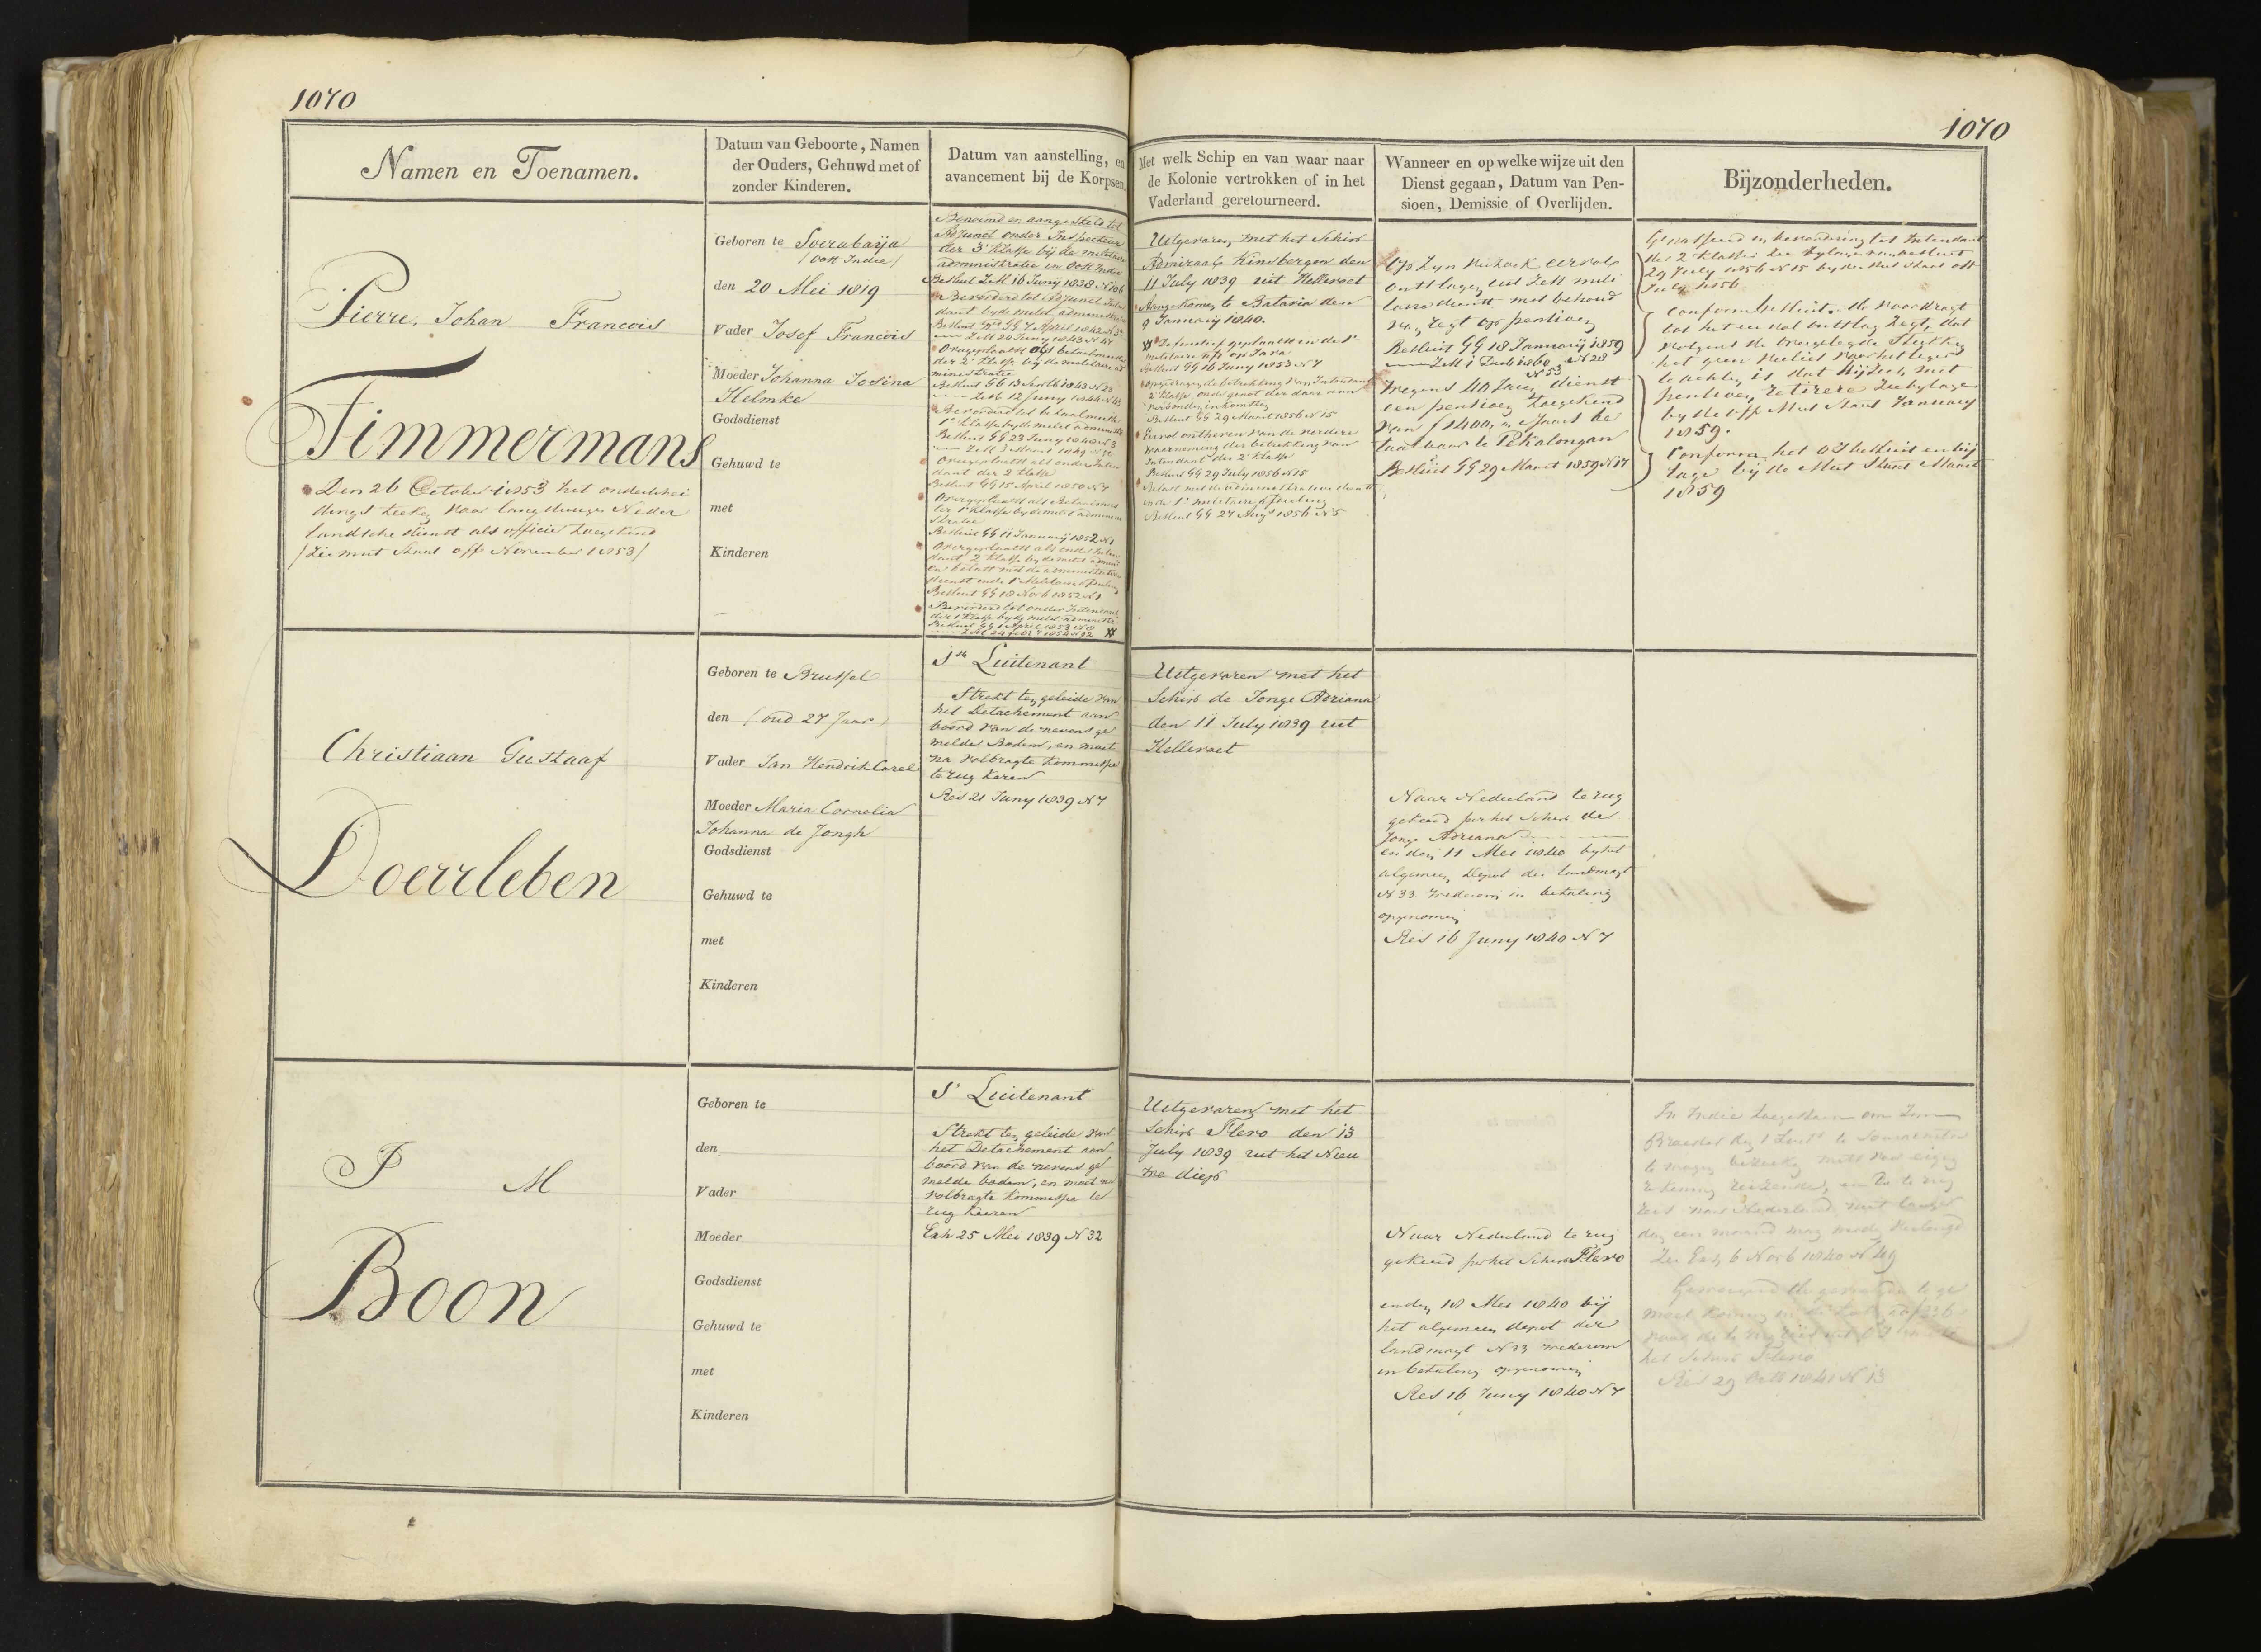 1070
1070
Namen en Toenamen.
Datum van Geboorte, Namen
der Ouders, Gehuwd met of
zonder Kinderen.
Datum van aanstelling, en
avancement bij de Korpsen.
Met welk Schip en van waar naar
de Kolonie vertrokken of in het
Vaderland geretourneerd.
Wanneer en op welke wijze uit den
Dienst gegaan, Datum van Pen-
sioen, Demissie of Overlijden.
Bijzonderheden.
Pierre, Johan Francois
Timmermans
Den 26 October 1853 het onderschei
dings teeken voor langdurige Neder
landsche dienst als officier toegekend
/Zie mut Staat off November 1853/
Geboren te Soerabaija
/Oost Indie/
den 20 Mei 1819
Vader Josef Francois
Moeder Johanna Josina
Helmke
Godsdienst
Gehuwd te
met
Kinderen
Benoemd en aangesteld tot
Adjunct onder Inspecteur
der 3e Klasse bij de militaire
administratie in Oost Indie
Besluit ZM 16 Junij 1838 N 106
Bevorderd tot Adjunct Inten
dant by de milit administratie
Besluit GG 7 April 1842
ZM 20 Juny 1843 N 47
Overgeplaatst als betaalmeester
der 2e Klasse bij de militaire ad
ministratie
Besluit GG 13
ZM 12 Juny 1844
Bevorderd tot betaalmeester
1e Klasse by de milit administr
Besluit GG 23 Juny 1848 N 3
ZM 3 Maart 1849 N 70
Overgeplaatst als onder Inten
dant der 2 Klasse
Besluit GG 15 April 1850 N 7
Overgeplaatst als Betaalmees
ter 1e Klasse by de milit adminis
tratie
Besluit GG 11 January 1852 N 1
Overgeplaatst als onder Inten
dant 2 Klasse by de milit admin
en belast met de administratieve
dienst in de 1e Militaire afdeeling
Besluit GG 18 Novb 1852 N 1
Bevorderd tot onder Intendant
der 1e Klasse by de milit administr
Besluit GG 1 April 1853 N 8
ZM 24 febr 1854 N 92
Uitgevaren met het Schip
Admiraal Kinsbergen den
11 July 1839 uit Hellevoet
Aangekomen te Batavia den
9 January 1840.
Definitief geplaatst in de 1e
Militaire Afd op Java
Besluit GG 16 Juny 1853 N 7
Opgedragen de betrekking van Intendant
2e Klasse onder genot der daar aan
verbonden inkomsten
Besluit GG 29 Maart 1856 N 15
Eervol ontheven van de verdere
waarneming der betrekking van
Intendant der 2e Klasse
Besluit GG 29 July 1856 N 15
Belast met de administratieve dienst
in de 1e militaire afdeeling
Besluit GG 27 Augs 1856 N 5
Op zyn verzoek eervol
ontslagen uit ZM mili
taire dienst met behoud
van regt op pensioen
Besluit GG 18 January 1859
ZM 1 Decb 1860 N 28
N 53
Wegens 40 Jaren dienst
een pensioen toegekend
van f 1400,,  's Jaars be
taalbaar te Pekalongan
Besluit GG 29 Maart 1859 N 17
der 2 Klasse Zie bylage van besluit
29 July 1856 N 15 by de Mut Staat off
July 1856
Conform besluit. de voordragt
tot het eervol ontslag zegt, dat
volgens de overgelegde Stukken
het geen verlies voor het leger
te achten is dat hij zich met
pensioen retirere Zie bylage
by de off Mut Staat January
1859.
Conform het O I besluit en bij
lage bij de Mut Staat Maart
1859
Christiaan Gustaaf
Doerrleben
Geboren te Brussel
den (oud 27 Jaar)
Vader Jan Hendrik Carel
Moeder Maria Cornelia
Johanna de Jongh
Godsdienst
Gehuwd te
met
Kinderen
1ste Luitenant
Strekt ten geleide van
het Detachement aan
boord van de nevens ge
melde Bodem, en moet
na volbragte Kommissie
terug keren
Res 21 Juny 1839 N 7
Uitgevaren met het
Schip de Jonge Adriana
den 11 July 1839 uit
Hellevoet
Naar Nederland terug
gekeerd per het Schip de
Jonge Adriana
en den 11 Mei 1840 by het
algemeen Depot der landmagt
N 33 wederom in betaling
opgenomen
Res 16 Juny 1840 N 7
J M
Boon
Geboren te
den
Vader
Moeder
Godsdienst
Gehuwd te
met
Kinderen
1e Luitenant
Strekt ten geleide van
het Detachement aan
boord van de nevens ge
melde bodem, en moet na
volbragte Kommissie te
rug keeren
Exh 25 Mei 1839 N 32
Uitgevaren met het
Schip Flero den 13
July 1839 uit het Nieu
we diep
Naar Nederland terug
gekeerd per het Schip Flero
en den 18 Mei 1840 bij
het algemeen depot der
landmagt N 33 wederom
in betaling opgenomen
Res 16 Juny 1840 N 7
In Indie toegestaan om
Broeder den 1 Luit te
te mogen bezoeken mits voor eigen
rekening reizende, en te rug
reis naar Nederland niet langer
dan een maand mag worden verlengd
Zie Exh 6 Novb 1840 N 49
het Schip Flero
Res 29 Octb 1841 N 13